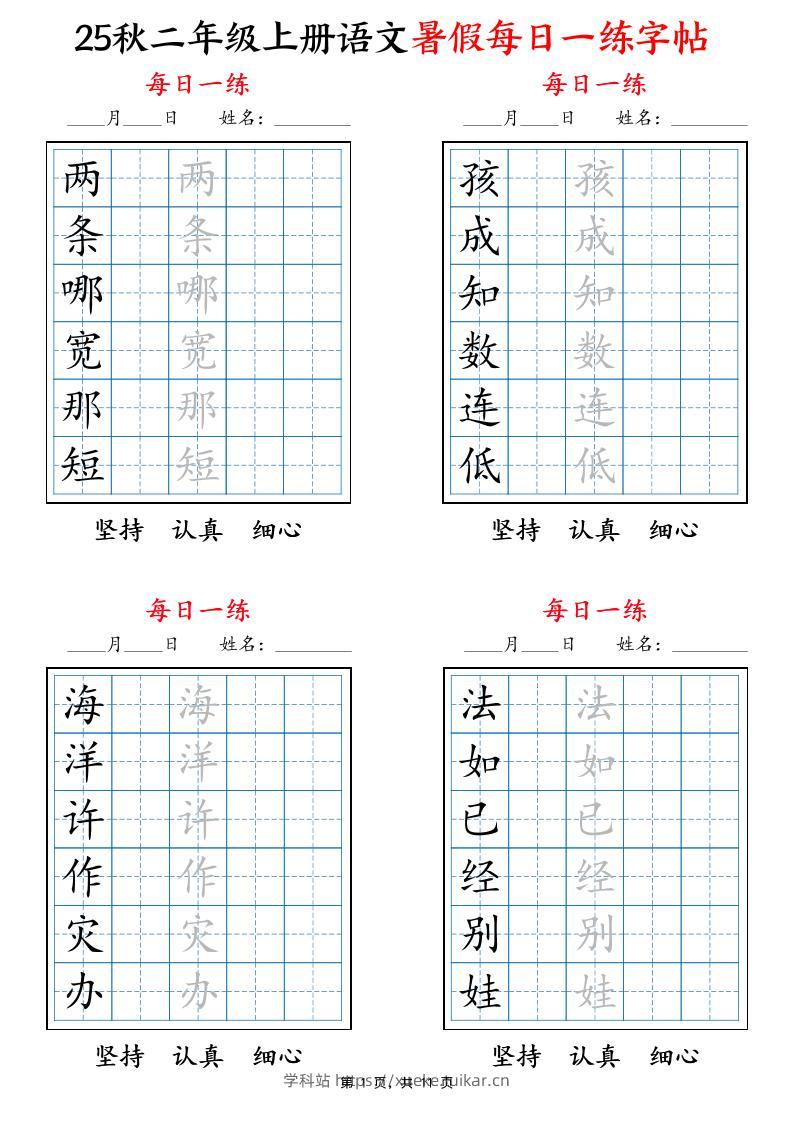 25秋二年级上册语文暑假每日一练字帖
每日一练
____月____日 姓名：________
两 两
条 条
哪 哪
宽 宽
那 那
短 短
坚持 认真 细心
每日一练
____月____日 姓名：________
孩 孩
成 成
知 知
数 数
连 连
低 低
坚持 认真 细心
每日一练
____月____日 姓名：________
海 海
洋 洋
许 许
作 作
灾 灾
办 办
坚持 认真 细心
每日一练
____月____日 姓名：________
法 法
如 如
已 已
经 经
别 别
娃 娃
坚持 认真 细心
学科站
第 1 页，共 11 页